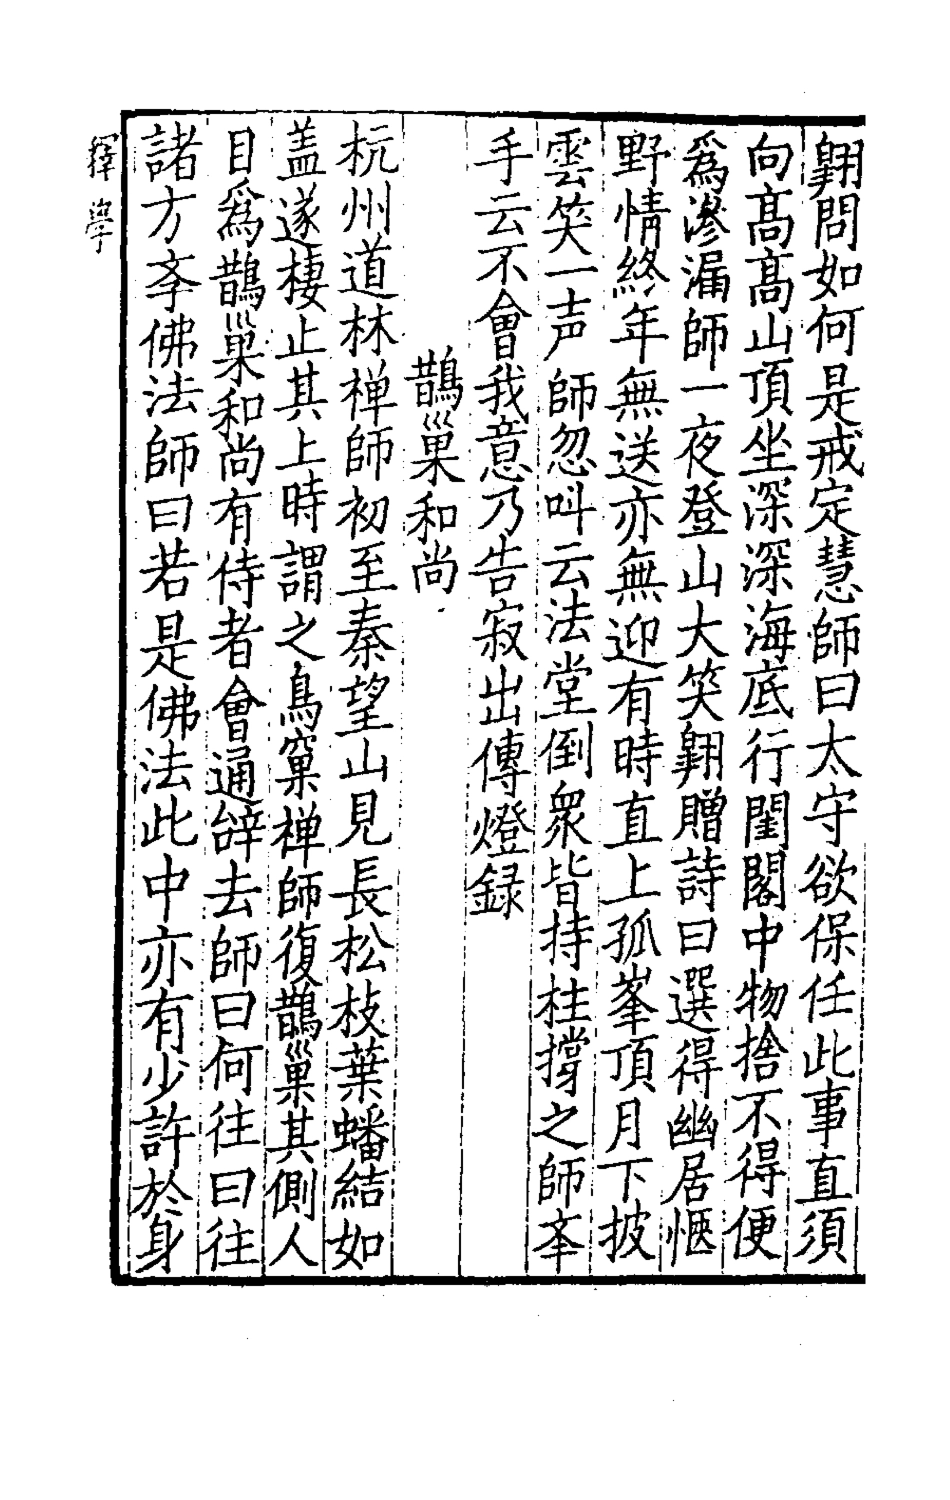 翺問如何是戒定慧師曰太守欲保任此事直須
向髙髙山頂坐深深海底行閨閤中物捨不得便
爲滲漏師一夜登山大笑翺贈詩曰選得幽居愜
野情終年無送亦無迎有時直上孤峯頂月下披
雲笑一声 師忽叫云法堂倒衆皆持柱撑之師夲
手云不會我意乃告寂出傳燈録
鵲巢和尚
杭州道林禅師初至秦望山見長松枝葉蟠結如
盖遂棲止其上時謂之鳥窠禅師復鵲巢其側人
目爲鵲巢和尚有侍者會通辞去師曰何往曰往
諸方斈佛法師曰若是佛法此中亦有少許於身
釋學